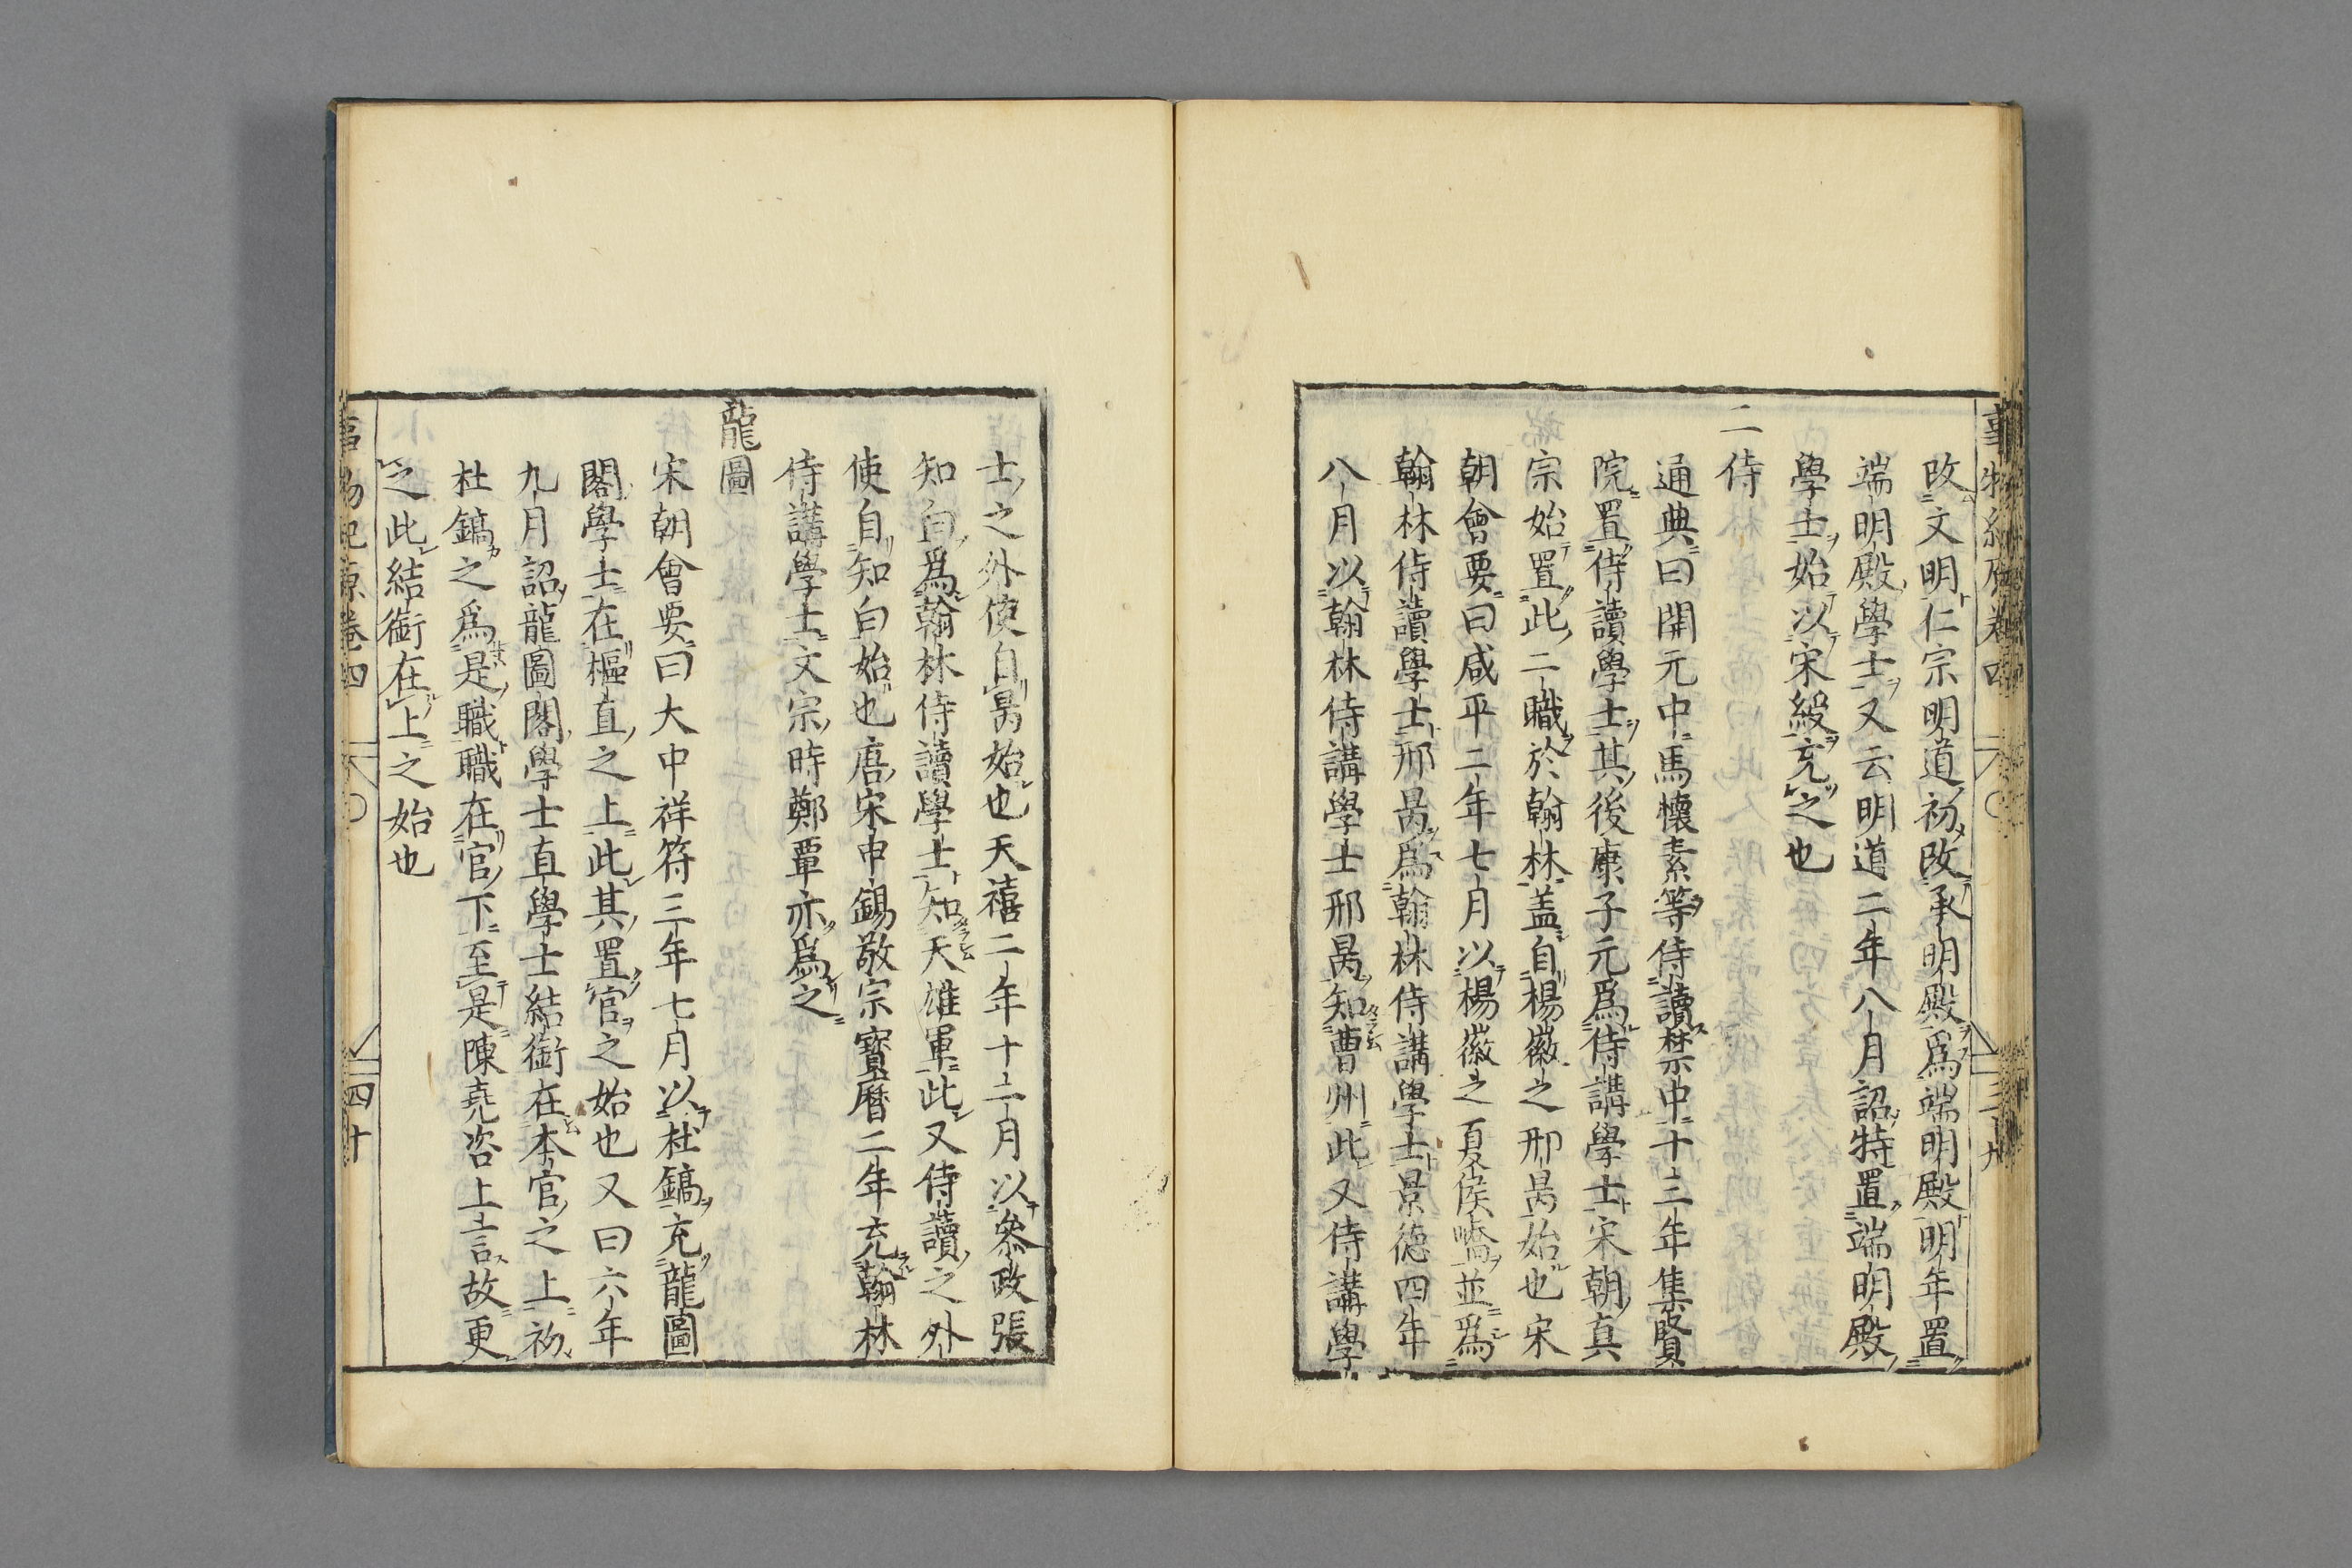 事物紀原卷四 三十九
改文明仁宗明道初改承明殿爲端明殿明年置
端明殿學士又云明道二年八月詔特置端明殿
學士始以宋綬充之也
二侍
通典曰開元中馬懷素等侍讀禁中十三年集賢
院置侍讀學士其後康子元爲侍講學士宋朝真
宗始置此二職於翰林盖自楊徽之邢昺始也宋
朝會要曰咸平二年七月以楊徽之夏侯嶠並爲
翰林侍讀學士邢昺爲翰林侍講學士景德四年
八月以翰林侍講學士邢昺知曹州此又侍講學
士之外使自昺始也天禧二年十二月以參政張
知白爲翰林侍讀學士知天雄軍此又侍讀之外
使自知白始也唐宋申錫敬宗寶曆二年充翰林
侍講學士文宗時鄭覃亦爲之
龍圖
宋朝會要曰大中祥符三年七月以杜鎬充龍圖
閣學士在樞直之上此其置官之始也又曰六年
九月詔龍圖閣學士直學士結銜在本官之上初
杜鎬之爲是職職在官下至是陳堯咨上言故更
之此結銜在上之始也
事物紀原卷四 四十